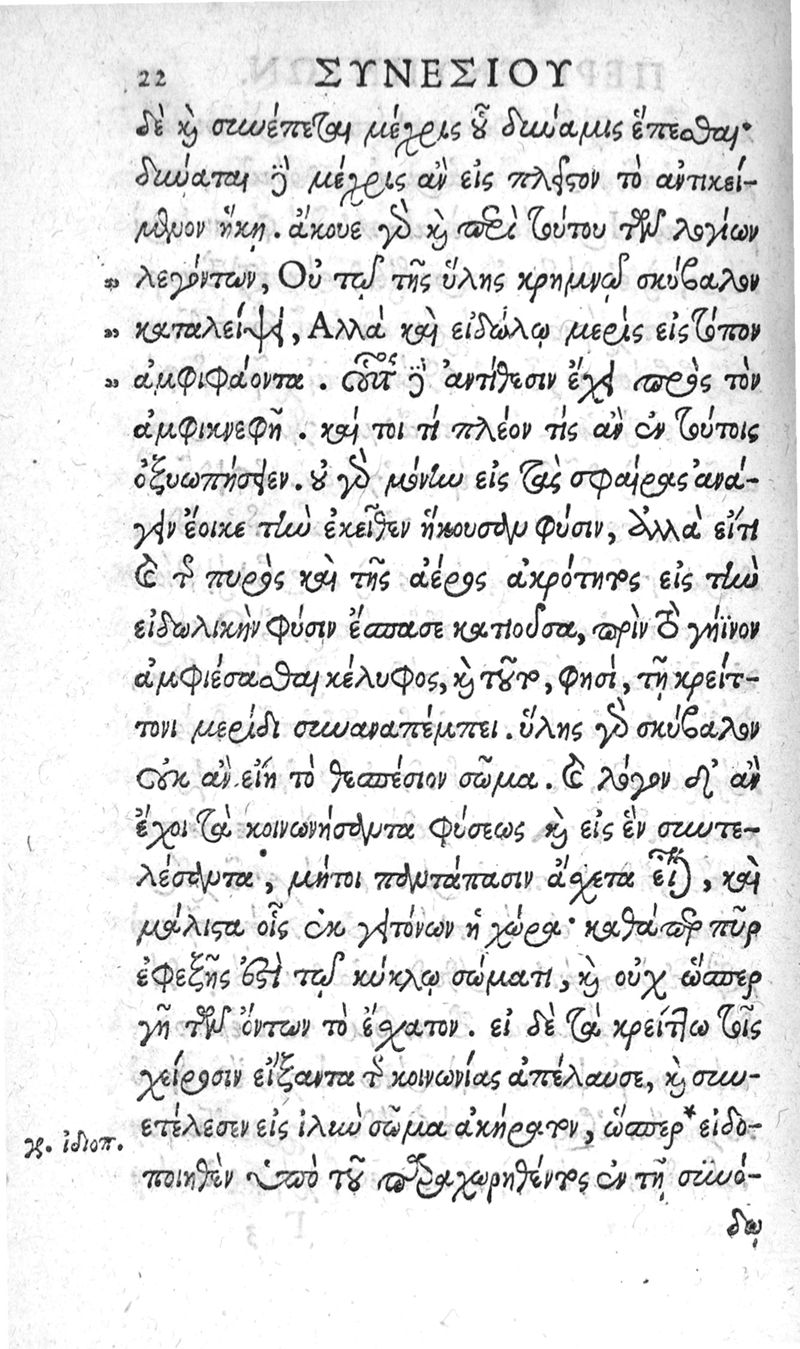 22 ΣΥΝΕΣΙΟΥ
δὲ καὶ συνέπεται μέχρις οὗ δύναμις ἕπεσθαι·
δύναται δὲ μέχρις ἂν εἰς πλεῖστον τὸ ἀντικεί-
μενον ἥκῃ. ἄκουε γὰρ καὶ περὶ τούτου τῶν λογίων
„ λεγόντων, Οὐ τῷ τῆς ὕλης κρημνῷ σκύβαλον
„ καταλείψει, Αλλὰ καὶ εἰδώλῳ μερὶς εἰς τόπον
„ ἀμφιφάοντα. οὗτος δὲ ἀντίθεσιν ἔχει πρὸς τὸν
ἀμφικνεφῆ. καί τοι τί πλέον τίς ἂν ἐν τούτοις
ὀξυωπήσειεν. οὐ γὰρ μόνην εἰς τὰς σφαίρας ἀνά-
γειν ἔοικε τὴν ἐκεῖθεν ἥκουσαν φύσιν, ἀλλὰ εἴ τι
καὶ τοῦ πυρὸς καὶ τῆς ἀέρος ἀκρότητος εἰς τὴν
εἰδωλικὴν φύσιν ἔσπασε κατιοῦσα, πρὶν τὸ γήϊνον
ἀμφιέσασθαι κέλυφος, καὶ τοῦτο, φησὶ, τῇ κρείτ-
τονι μερίδι συναναπέμπει. ὕλης γὰρ σκύβαλον
οὐκ ἂν εἴη τὸ θεσπέσιον σῶμα. καὶ λόγον δ' ἂν
ἔχοι τὰ κοινωνήσαντα φύσεως καὶ εἰς ἓν συντε-
λέσαντα, μήτοι παντάπασιν ἄσχετα εἶναι, καὶ
μάλιστα οἷς ἐκ γειτόνων ἡ χώρα· καθάπερ πῦρ
ἐφεξῆς ἐστὶ τῷ κύκλῳ σώματι, καὶ οὐχ ὥσπερ
γῆ τῶν ὄντων τὸ ἔσχατον. εἰ δὲ τὰ κρείττω τοῖς
χείροσιν εἴξαντα τῆς κοινωνίας ἀπέλαυσε, καὶ συν-
ετέλεσεν εἰς ἰλὺν σῶμα ἀκήρατον, ὥσπερ * εἰδο-
γρ. ἰδιοπ.
ποιηθὲν ὑπὸ τοῦ παραχωρηθέντος ἐν τῇ συνό-
δῳ